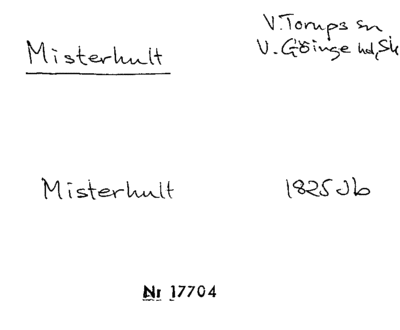 V. Torups sn
Misterhult
V. Göinge hd, Sk
Misterhult
1825 Jb
Nr 17704